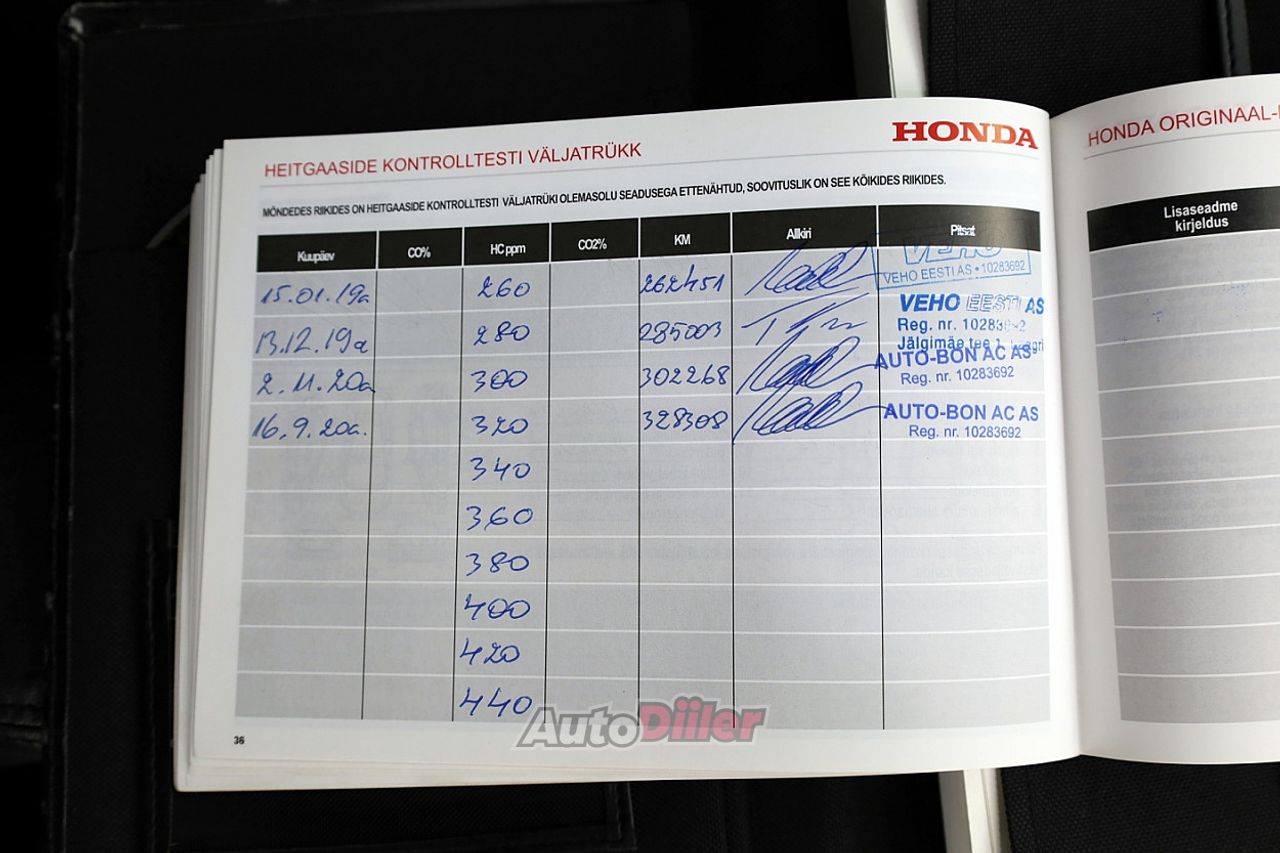 HEITGAASIDE KONTROLLTESTI VÄLJATRÜKK HONDA
MÕNDEDES RIIKIDES ON HEITGAASIDE KONTROLLTESTI VÄLJATRÜKI OLEMASOLU SEADUSEGA ETTENÄHTUD, SOOVITUSLIK ON SEE KÕIKIDES RIIKIDES.
Kuupäev CO% HC ppm CO2% KM Allkiri Pitsat
VEHO
VEHO EESTI AS • 10283692
15.01.19a 260 262451
VEHO EESTI AS
Reg. nr. 10283692
Jälgimäe tee 1,
13.12.19a 280 285003
AUTO-BON AC AS
Reg. nr. 10283692
2.11.20a 300 302268
AUTO-BON AC AS
Reg. nr. 10283692
16.9.20a. 320 328308
340
360
380
400
420
440
36
AutoDiiler
HONDA ORIGINAAL-
Lisaseadme
kirjeldus